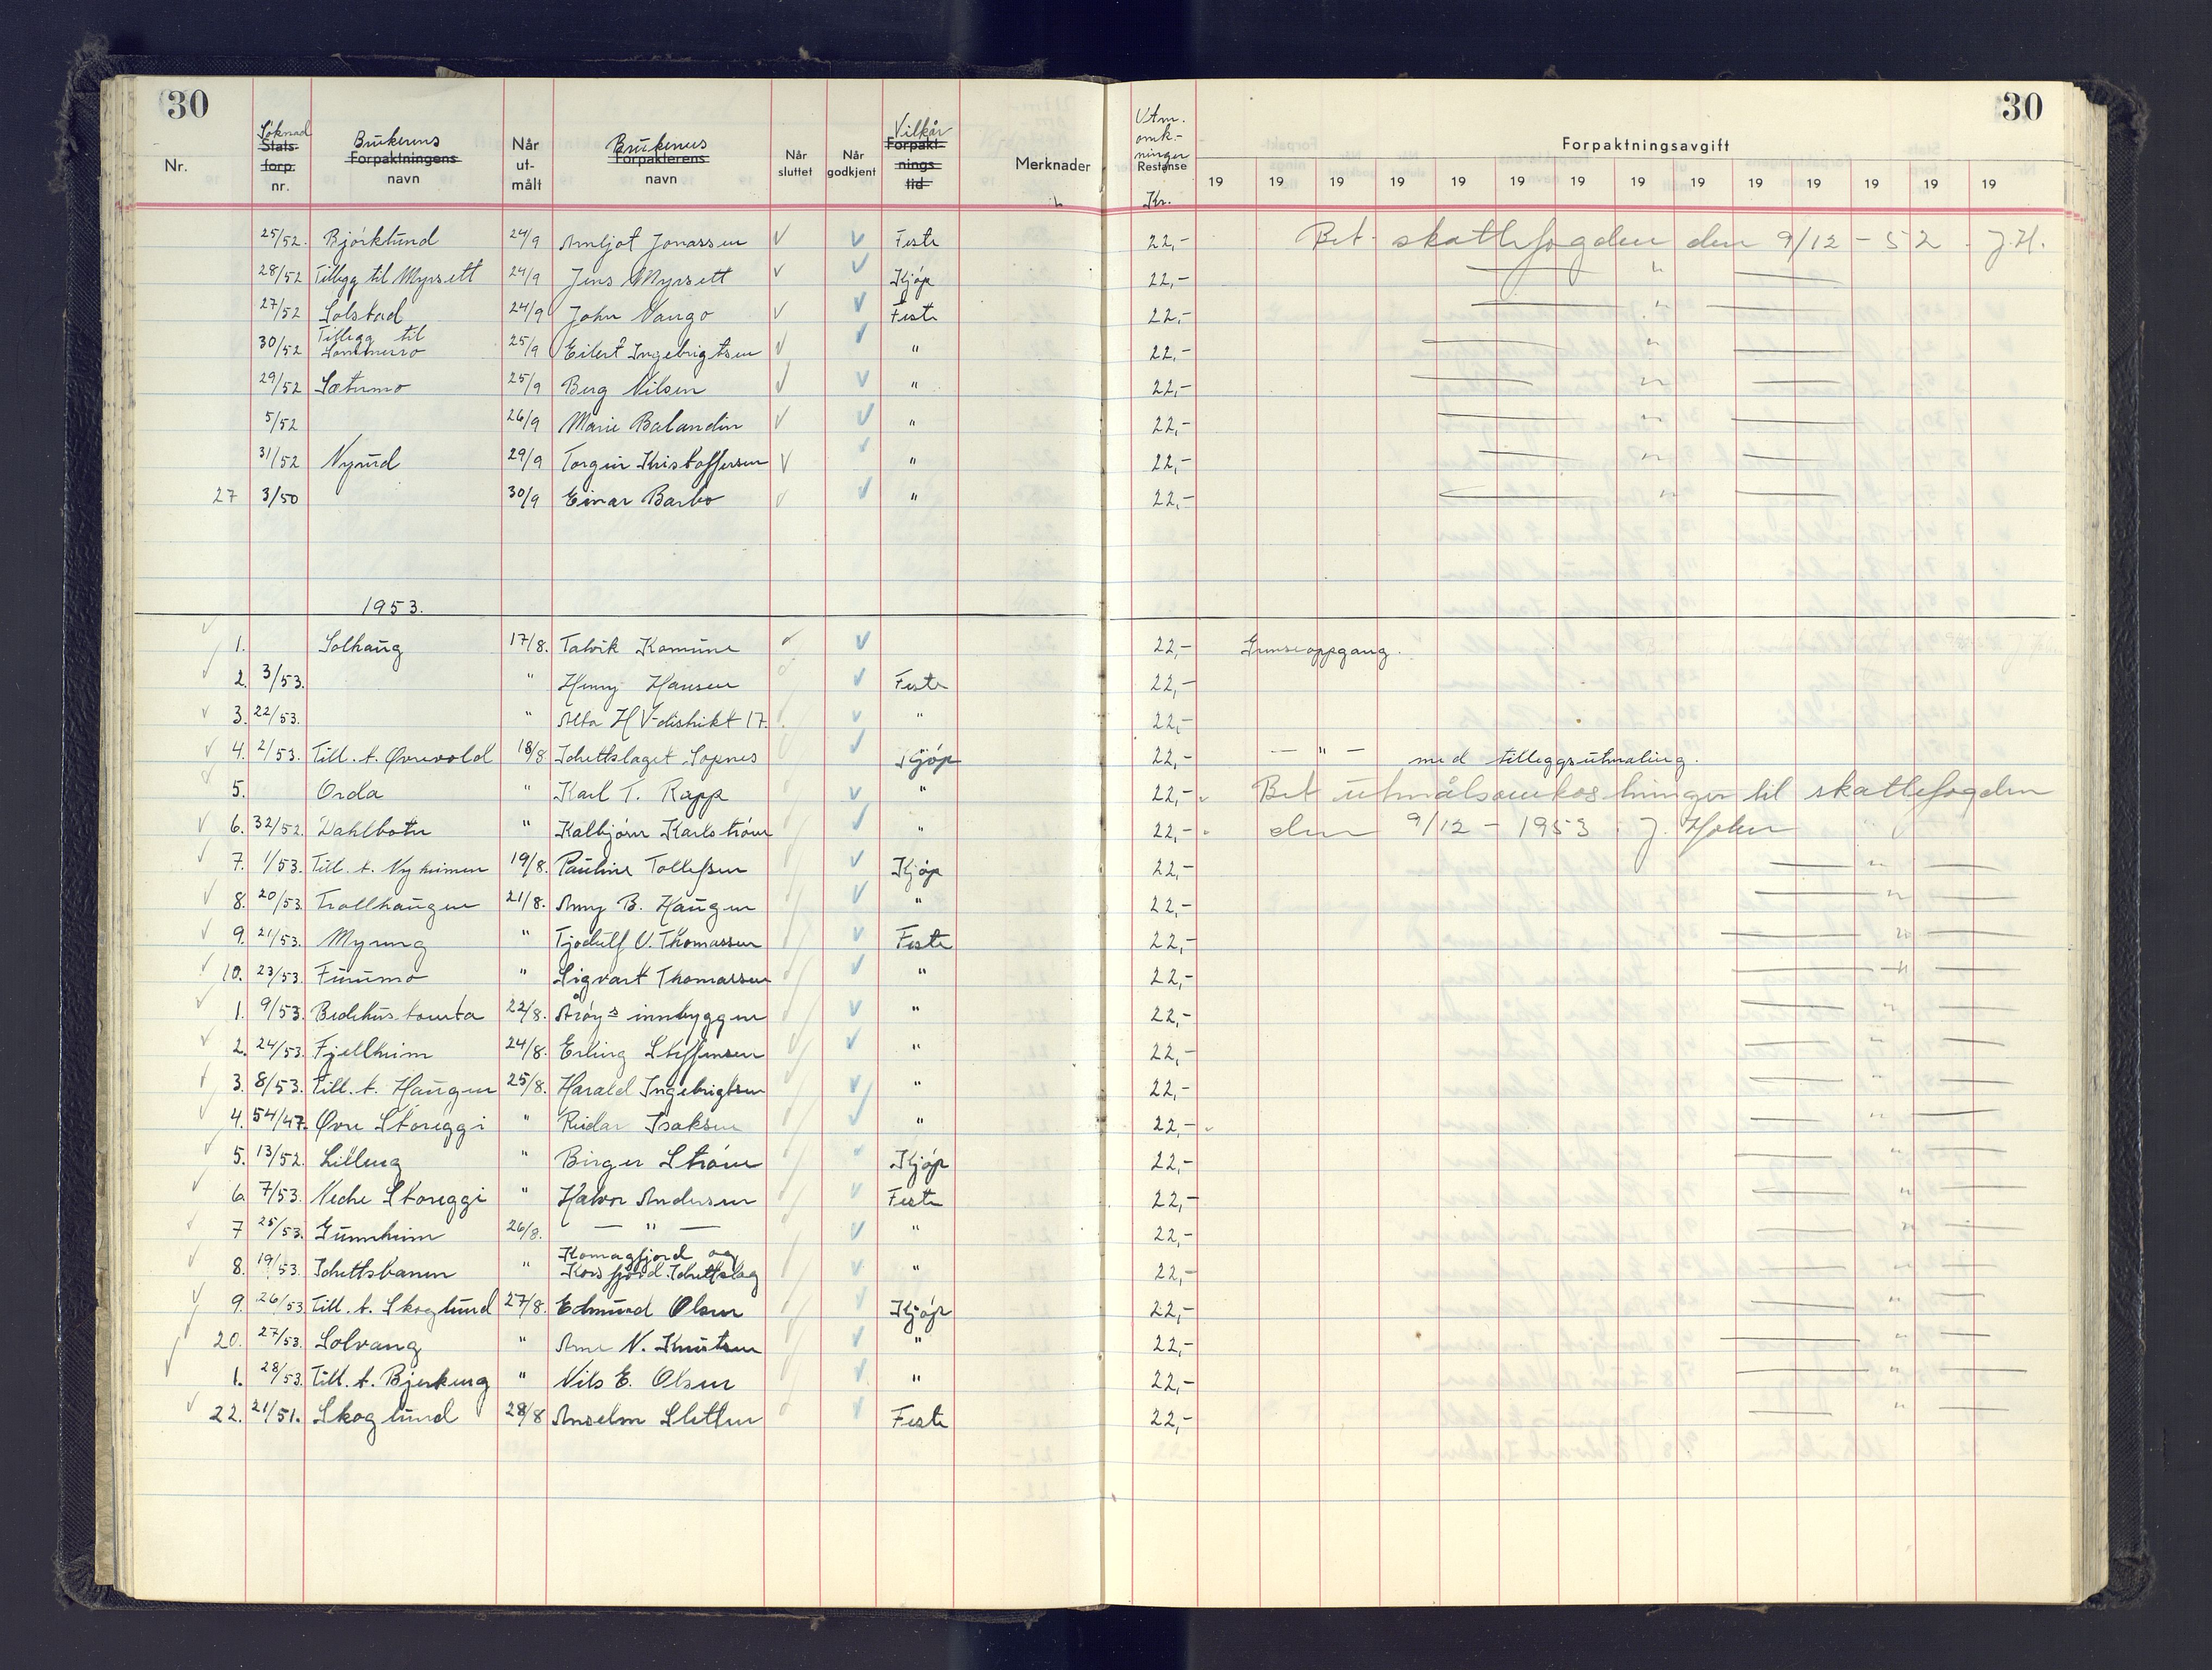 30 30
Nr. Søknad Stats- forp. nr. Brukerens Forpaktningens navn Når ut- målt Brukerens Forpakterens navn Når sluttet Når godkjent Vilkår Forpakt- nings tid Merknader Utm. omk- ninger Restanse Kr. Forpaktningsavgift
19 19 19 19 19 19 19 19 19 19 19 19 19 19
25/52. Bjørklund 24/9 Arnljot Jonassen √ √ Feste 22,- Bet. skattefogden den 9/12 - 52 J.H.
28/52 Tillegg til Myrsett 24/9 Jens Myrsett √ √ Kjøp 22,- — " —
27/52 Solstad 24/9 John Vango √ √ Feste 22,- — " —
30/52 Tillegg til Sommerro 25/9 Eilert Ingebrigtsen √ √ " 22,- — " —
29/52 Sætermo 25/9 Berg Nilsen √ √ " 22,- — " —
5/52 26/9 Marie Balandin √ √ " 22,- — " —
31/52 Nyrud 29/9 Torgeir Kristoffersen √ √ " 22,- — " —
27 3/50 30/9 Einar Barbo √ √ " 22,- — " —
1953.
√ 1. Solhaug 17/8. Talvik Komune √ √ 22,- Grenseoppgang.
√ 2. 3/53. " Henry Hansen √ √ Feste 22,-
√ 3. 22/53. " Alta HV-distrikt 17. √ √ " 22,-
√ 4. 2/53. Till. t. Øvrevold 18/8 Idrettslaget Sopnes √ √ Kjøp 22,- — " — med tilleggsutmaling.
√ 5. Orda " Karl T. Rapp √ √ " 22,- Bet utmålsomkostninger til skattefogden
√ 6. 32/52. Dahlbotn " Kalbjørn Karlstrøm √ √ " 22,- den 9/12 - 1953. J. Holm
√ 7. 1/53. Till. t. Nyheimen 19/8. Pauline Tollefsen √ √ Kjøp 22,- — " —
√ 8. 20/53. Trollhaugen 21/8. Anny B. Haugen √ √ " 22,- — " —
√ 9. 21/53. Myreng " Tjodulf V. Thomassen √ √ Feste 22,- — " —
√ 10. 23/53. Furumo " Sigvart Thomassen √ √ " 22,- — " —
√ 1. 9/53. Bedehustomta 22/8. Årøys innbyggere √ √ " 22,- — " —
√ 2. 24/53. Fjellheim 24/8. Erling Steffensen √ √ " 22,- — " —
√ 3. 8/53. Till. t. Haugen 25/8. Harald Ingebrigtsen √ √ " 22,- — " —
√ 4. 54/47. Øvre Storeggi " Reidar Isaksen √ √ " 22,- — " —
√ 5. 13/52. Lilleng " Birger Strøm √ √ Kjøp 22,- — " —
√ 6. 7/53. Nedre Storeggi " Halvor Andersen √ √ Feste 22,- — " —
√ 7 25/53. Grunnheim 26/8. — " — √ √ " 22,- — " —
√ 8. 19/53. Idrettsbanen " Komagfjord og Korsfjord Idrettslag √ √ " 22,- — " —
√ 9. 26/53 Till. t. Skoglund 27/8. Edmund Olsen √ √ Kjøp 22,- — " —
√ 20. 27/53. Solvang " Arne N. Knutsen √ √ " 22,- — " —
√ 1. 28/53. Till. t. Bjerkeng " Nils E. Olsen √ √ " 22,- — " —
√ 22. 21/51. Skoglund 28/8 Anselm Sletten √ √ Feste 22,- — " —